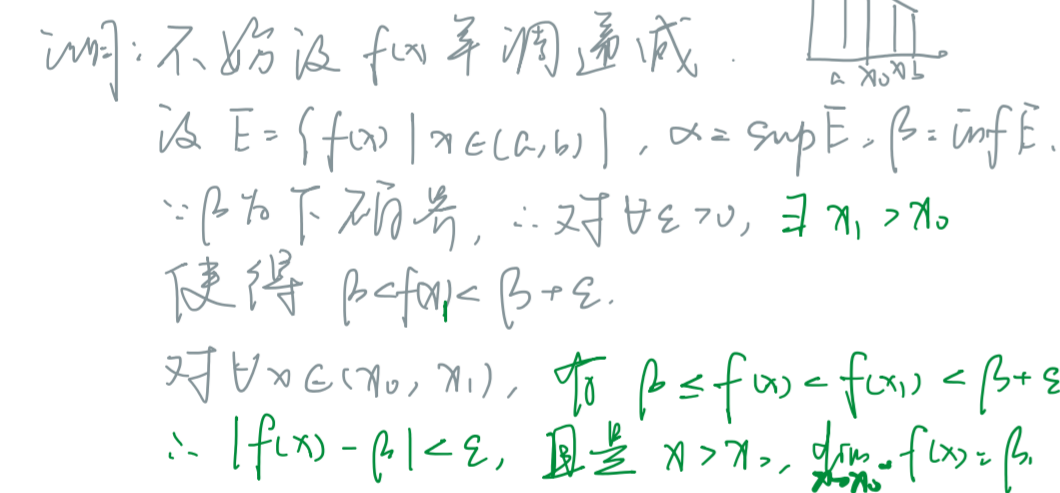 证明:不妨设 f(x) 单调递减.
a x₀ x b
设 E = {f(x) | x∈(a,b)}, α = sup E, β = inf E.
∵β为下确界, ∴对∀ε>0, ∃ x₁ > x₀
使得 β<f(x₁)< β+ε.
对∀x∈(x₀, x₁), 有 β ≤ f(x) < f(x₁) < β+ε
∴ |f(x) - β| < ε, 且 x > x₀, lim x→x₀ f(x) = β.